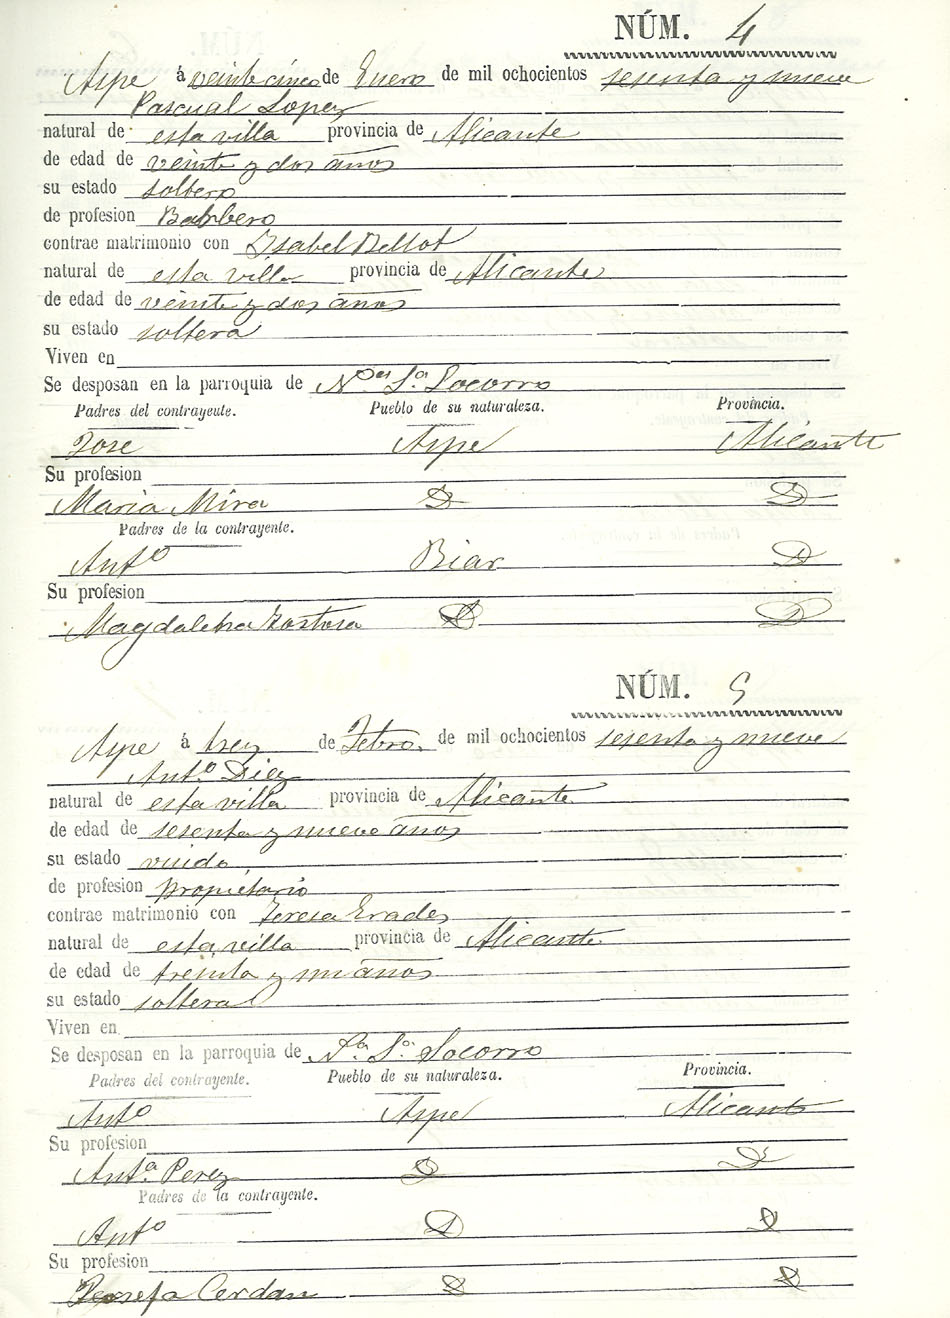 NÚM. 4
Aspe á veinte cinco de Enero de mil ochocientos sesenta y nueve
Pascual Lopez
natural de esta villa provincia de Alicante
de edad de veinte y dos años
su estado soltero
de profesion Barbero
contrae matrimonio con Isabel Bellot
natural de esta villa provincia de Alicante
de edad de veinte y dos años
su estado soltera
Viven en
Se desposan en la parroquia de Nª Sª Socorro
Padres del contrayente. Pueblo de su naturaleza. Provincia.
Jose Aspe Alicante
Su profesion
Maria Mira D D
Padres de la contrayente.
Antº Biar D
Su profesion
Magdalena Tortosa D D
NÚM. 5
Aspe á trez de Febro. de mil ochocientos sesenta y nueve
Antº Diez
natural de esta villa provincia de Alicante
de edad de sesenta y nueve años
su estado viudo
de profesion propietario
contrae matrimonio con Teresa Erades
natural de esta villa provincia de Alicante
de edad de treinta y un años
su estado soltera
Viven en
Se desposan en la parroquia de Nª Sª Socorro
Padres del contrayente. Pueblo de su naturaleza. Provincia.
Antº Aspe Alicante
Su profesion
Antª Perez D D
Padres de la contrayente.
Antº D D
Su profesion
Josefa Cerdan D D